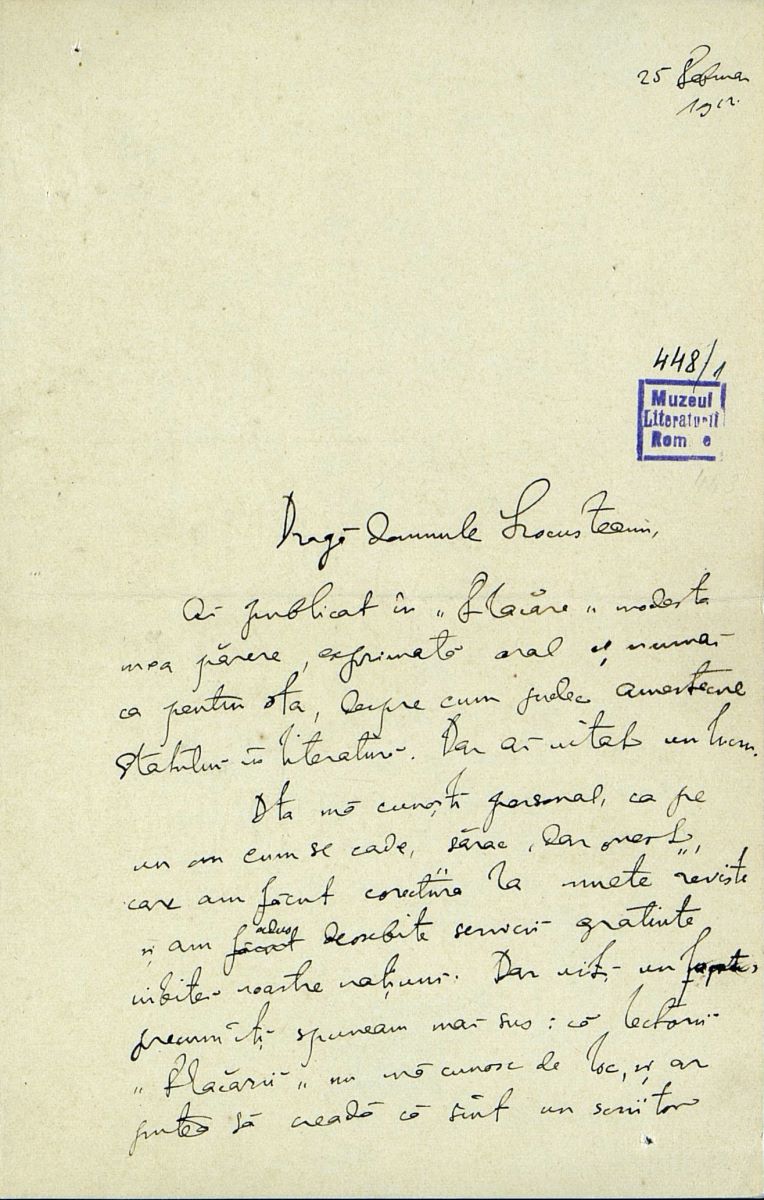 25 Februar
1912.
448/1
Muzeul
Literaturii
Rom e
Dragă domnule Locusteanu,
Ai publicat în „Flacăra„ modesta
mea părere, exprimată oral și numai
ca pentru dta, despre cum judec amestecul
Statului în literatură. Dar ai uitat un lucru.
Dta mă cunoști personal, ca pe
un om cum se cade, „sărac, dar onest„,
care am făcut corectura la unele reviste
și am adus deosebite servicii gratuite
iubitei noastre națiuni. Dar uiți un
precum îți spuneam mai sus: că lectorii
„Flacării„ nu mă cunosc de loc, și ar
putea să creadă că sînt un scriitor